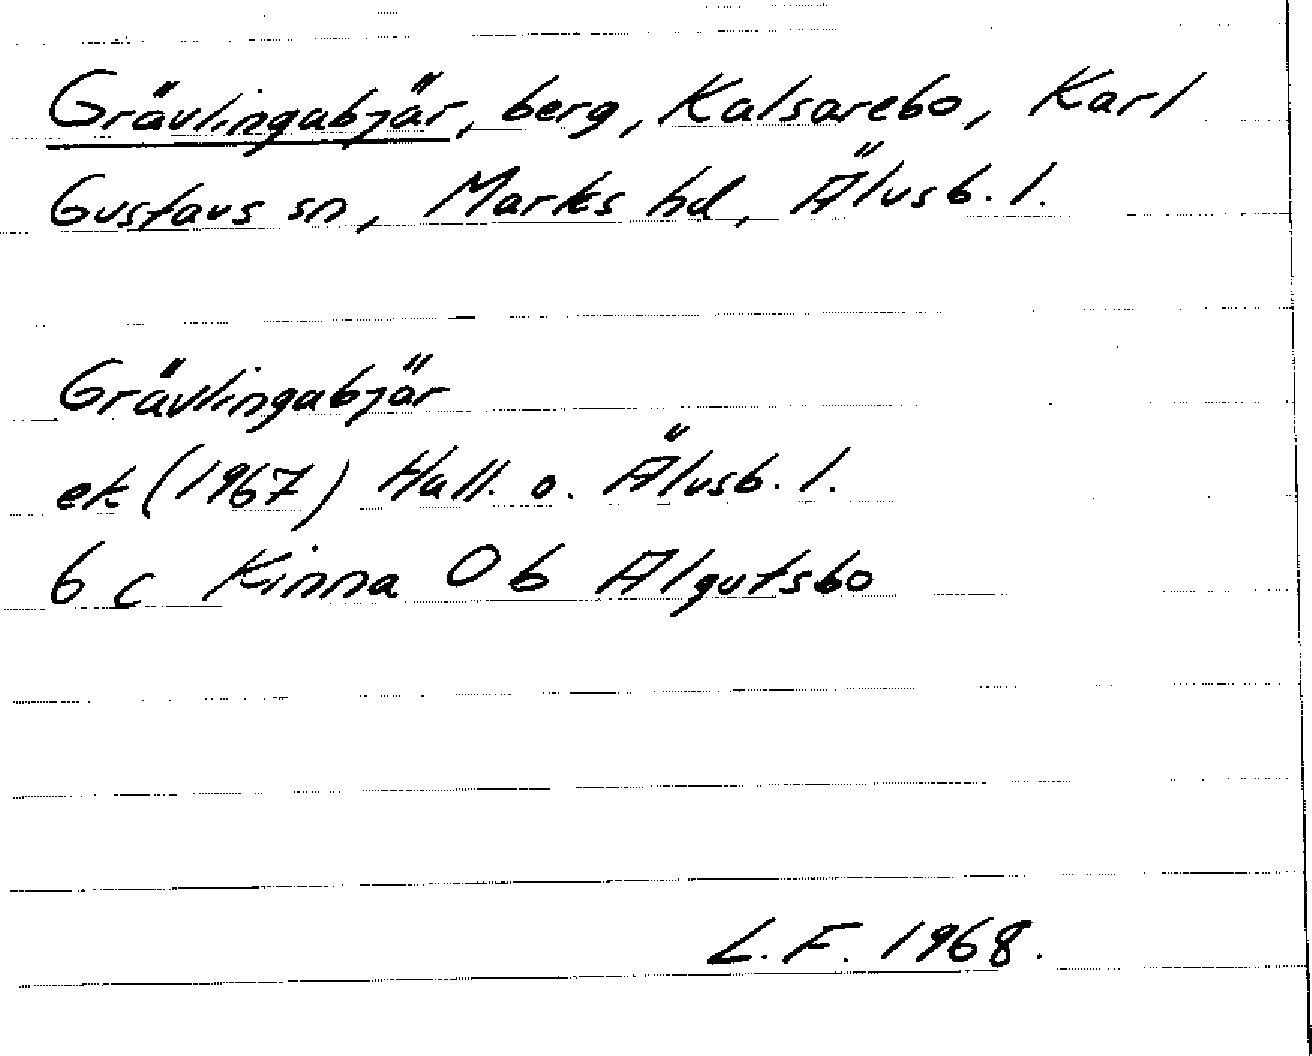 Grävlingabjär, berg, Kalsarebo, Karl
Gustavs sn, Marks hd, Älvsb. l.
Grävlingabjär
ek (1967) Hall. o. Älvsb. l.
6 c Kinna 0 b Älgutsbo
L.F. 1968.